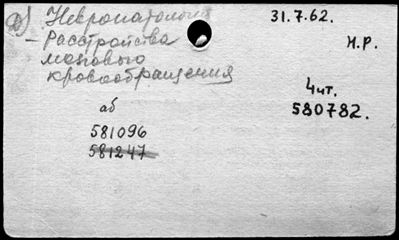 2) Невропатология
31.7.62.
- Расстройства
Н.Р.
мозгового
кровообращения
4 чит.
аб
580782.
581096
581247